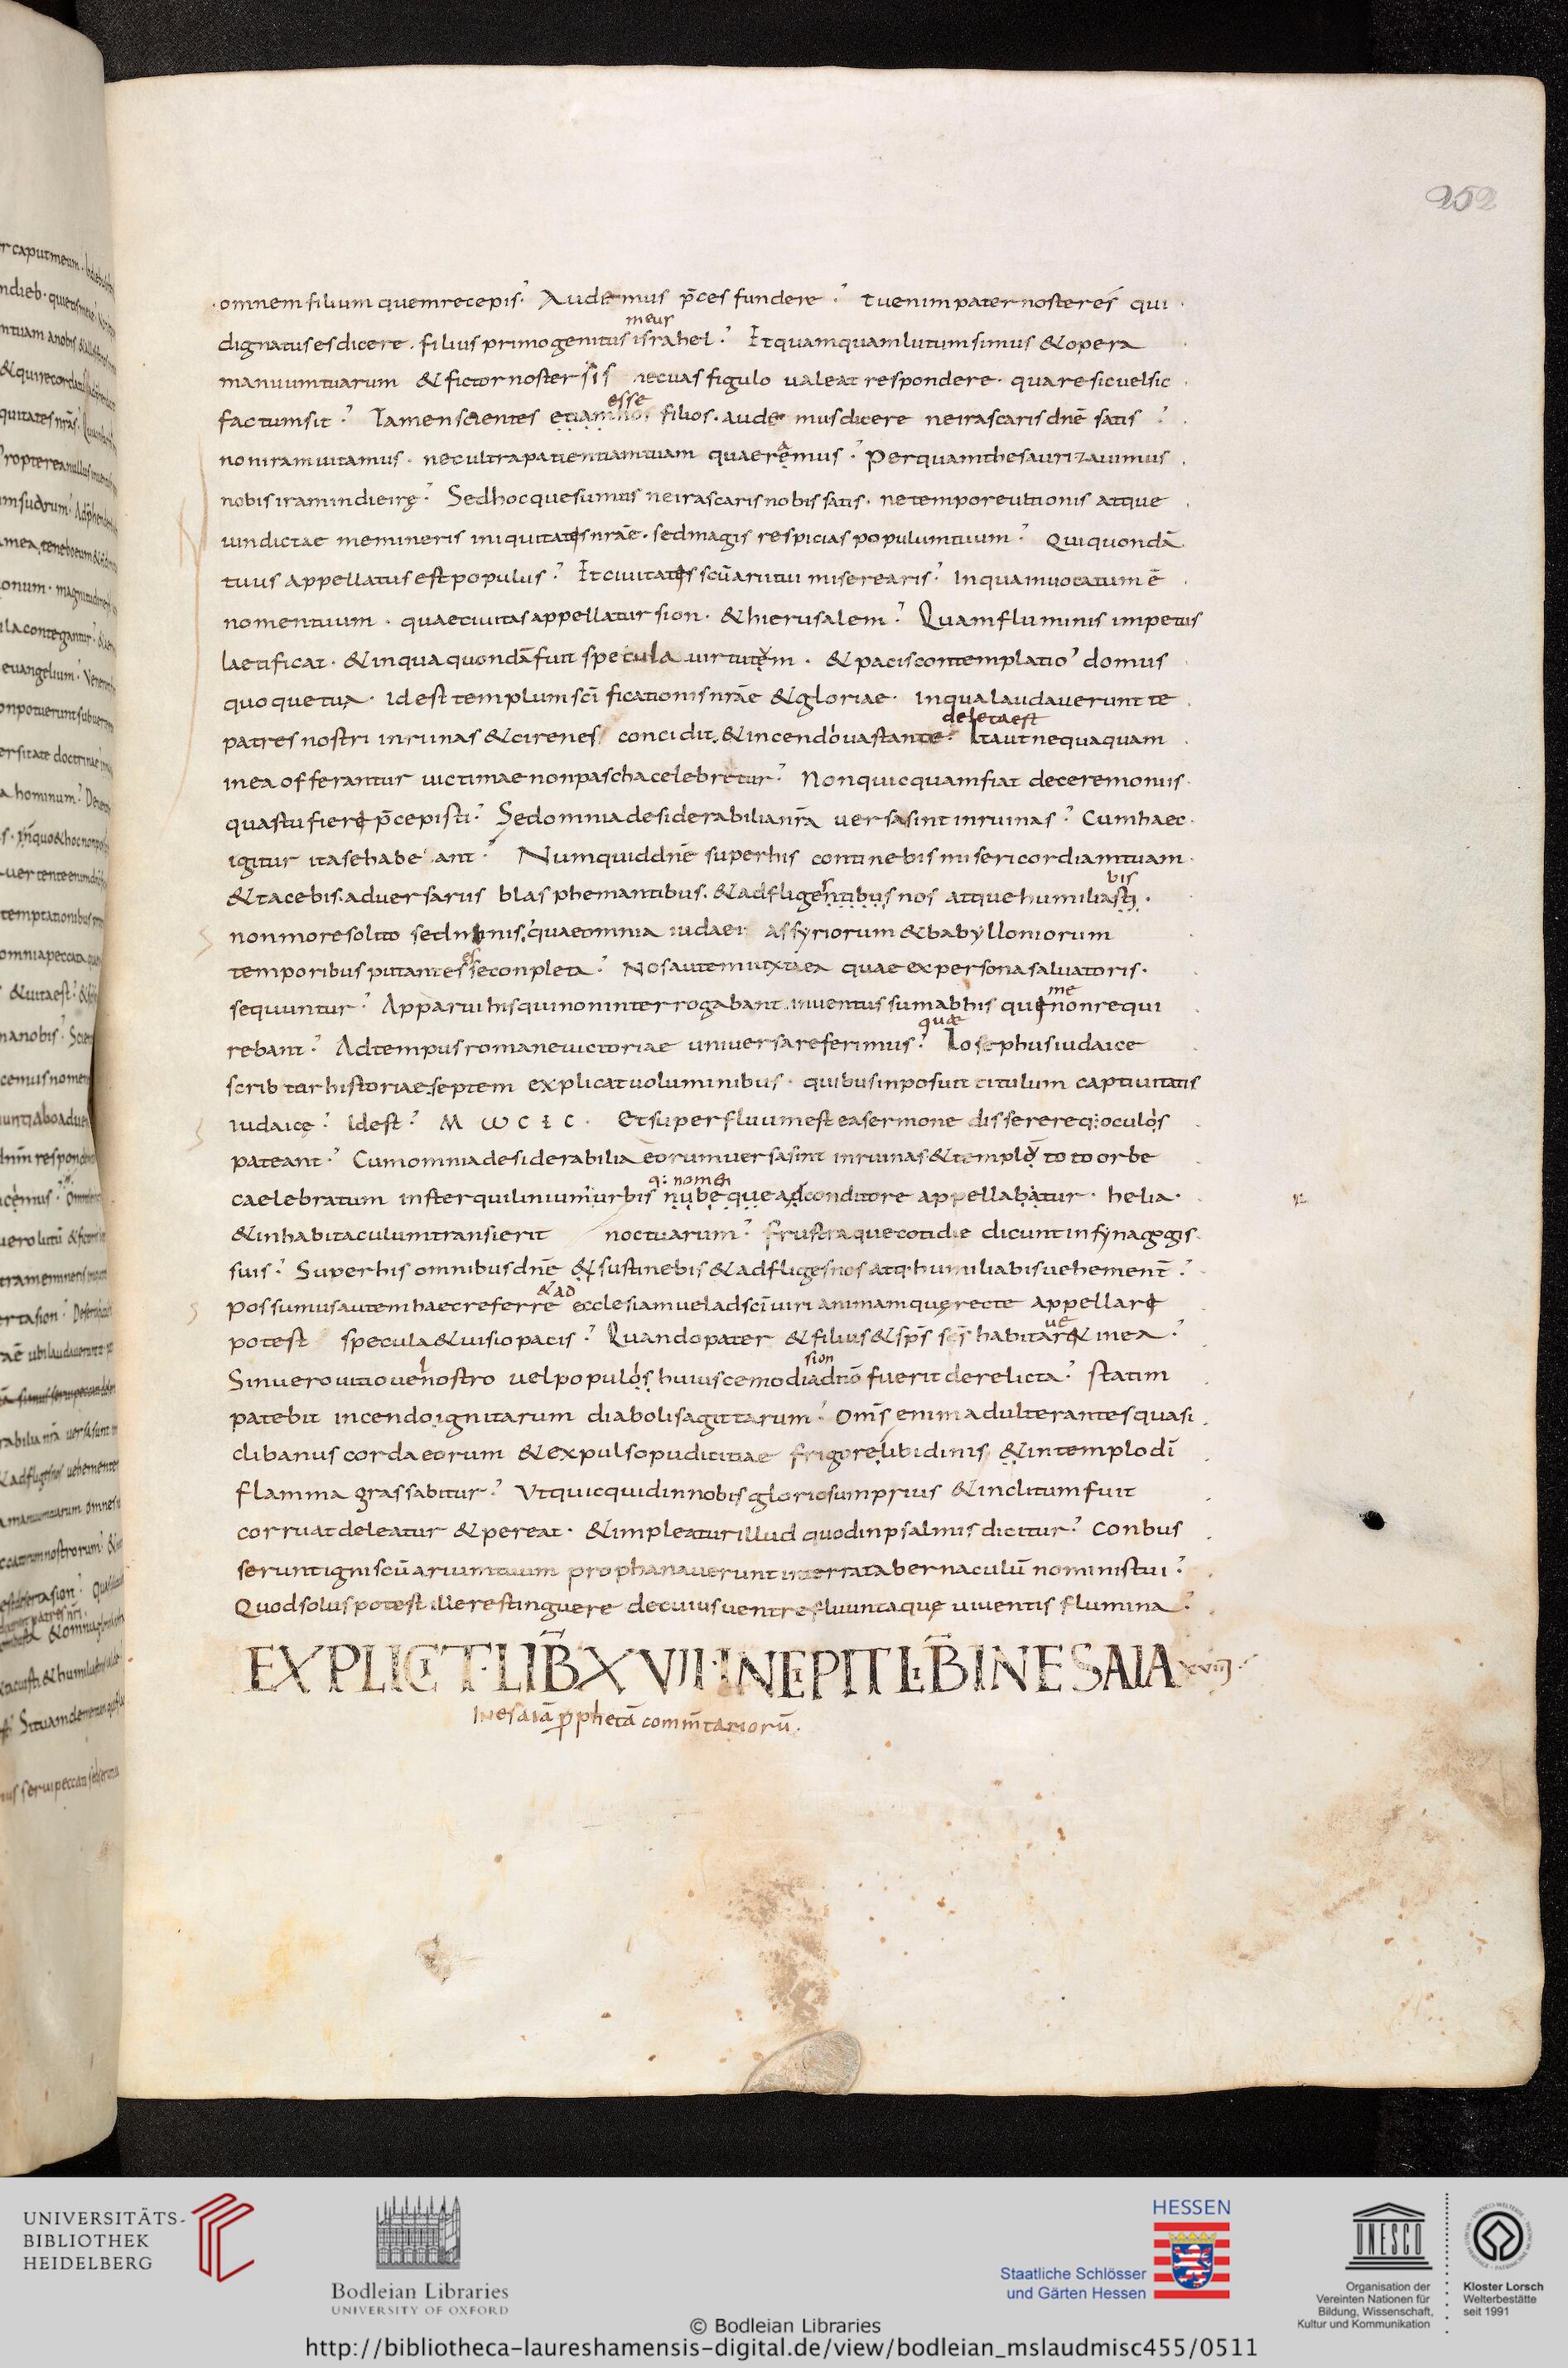 252
omnem filium quem recepis. Audemus p̄ces fundere. tu enim pater noster es qui
meus
dignatus es dicere. filius primogenitus israhel. Et quamquam lutum simus & opera
manuum tuarum & fictor noster sis nec vas figulo valeat respondere. quare sic vel sic
esse
factum sit. Tamen scientes etiam filios. aude mus dicere ne irascaris dnē satis
non iram vitamus. nec ultra patientiam tuam quaeremus. Per quam thesaurizavimus
nobis iram in die irę. Sed hoc quesumus ne irascaris nobis satis. ne tempore ultionis atque
vindictae memineris iniquitatis nrāe. sed magis respicias populum tuum. Qui quondā
tuus appellatus est populus. Et civitatis scūarii tui miserearis. In qua invocatum ē
nomen tuum. quae civitas appellatur sion. & hierusalem. Quam fluminis impetus
laetificat. & in qua quondā fuit specula virtutem. & pacis contemplatio domus
quoque tua. Id est templum scīficationis nrāe & gloriae. in qua laudaverunt te
deleta est
patres nostri in ruinas & cirenes concidit. & incendo vastante. Ita ut nequaquam
in ea offerantur victimae non pascha celebretur. Non quicquam fiat de ceremoniis
quas tu fieri p̄cepisti. Sed omnia desiderabilia nrā versa sint in ruinas. Cum haec
igitur ita se habe ant. Numquid dnē super his continebis misericordiam tuam
bis
& tacebis. adversariis blasphemantibus. & adfligentibus nos atque humiliasti.
non more solito sed nimis. quae omnia iudaei assyriorum & babylloniorum
es
temporibus putant esse conpleta. Nos autem iuxta ea quae ex persona salvatoris.
me
sequuntur. Apparui his qui non interrogabant. inventus sum ab his qui non requi
quae
rebant. Ad tempus romane victoriae universa referimus. Iosephus iudaice
scrib tor historiae septem explicat voluminibus. quibus inposuit titulum captivitatis
iudaicę. Id est. M ω C ł C. Et superfluum est ea sermone disserere q: oculos
pateant. Cum omnia desiderabilia eorum versa sint in ruinas & templo toto orbe
q: nomen
caelebratum in sterquilinium urbis nubę que ad conditore appellabatur. helia.
& in habitaculum transierit noctuarum. frustraque cotidie dicunt in synagogis
suis. Super his omnibus dnē & sustinebis & adfliges nos atq. humiliabis vehement̄.
& ad
Possumus autem haec referre ecclesiam vel ad scī viri animam quę recte appellari
ve
potest specula & visio pacis. Quando pater & filius & sp̄s scs̄ habitar& in ea.
sion
Sin vero vitio vel nostro vel populos huiuscemodi a dnō fuerit derelicta. statim
patebit incendo ignitarum diaboli sagittarum. Om̄s enim adulterantes quasi
clibanus corda eorum & expulso pudicitiae frigore libidinis & in templo dī
flamma grassabitur. Ut quicquid in nobis gloriosum prius & inclitum fuit
corruat deleatur & pereat. & impleatur illud quod in psalmis dicitur. Conbus
serunt igni scūarium tuum prophanaverunt in terra tabernaculū nominis tui.
Quod solus potest ille restinguere de cuius ventre fluunt aquę viventis flumina.
EXPLICIT LIB̄ XVII INCIPIT LIB̄ IN ESAIA XVIII
In esaiā p̱phetā comm̄tariorū.
UNIVERSITÄTS-
BIBLIOTHEK
HEIDELBERG
Bodleian Libraries
UNIVERSITY OF OXFORD
HESSEN
Staatliche Schlösser
und Gärten Hessen
UNESCO
Organisation der
Vereinten Nationen für
Bildung, Wissenschaft,
Kultur und Kommunikation
Kloster Lorsch
Welterbestätte
seit 1991
© Bodleian Libraries
http://bibliotheca-laureshamensis-digital.de/view/bodleian_mslaudmisc455/0511